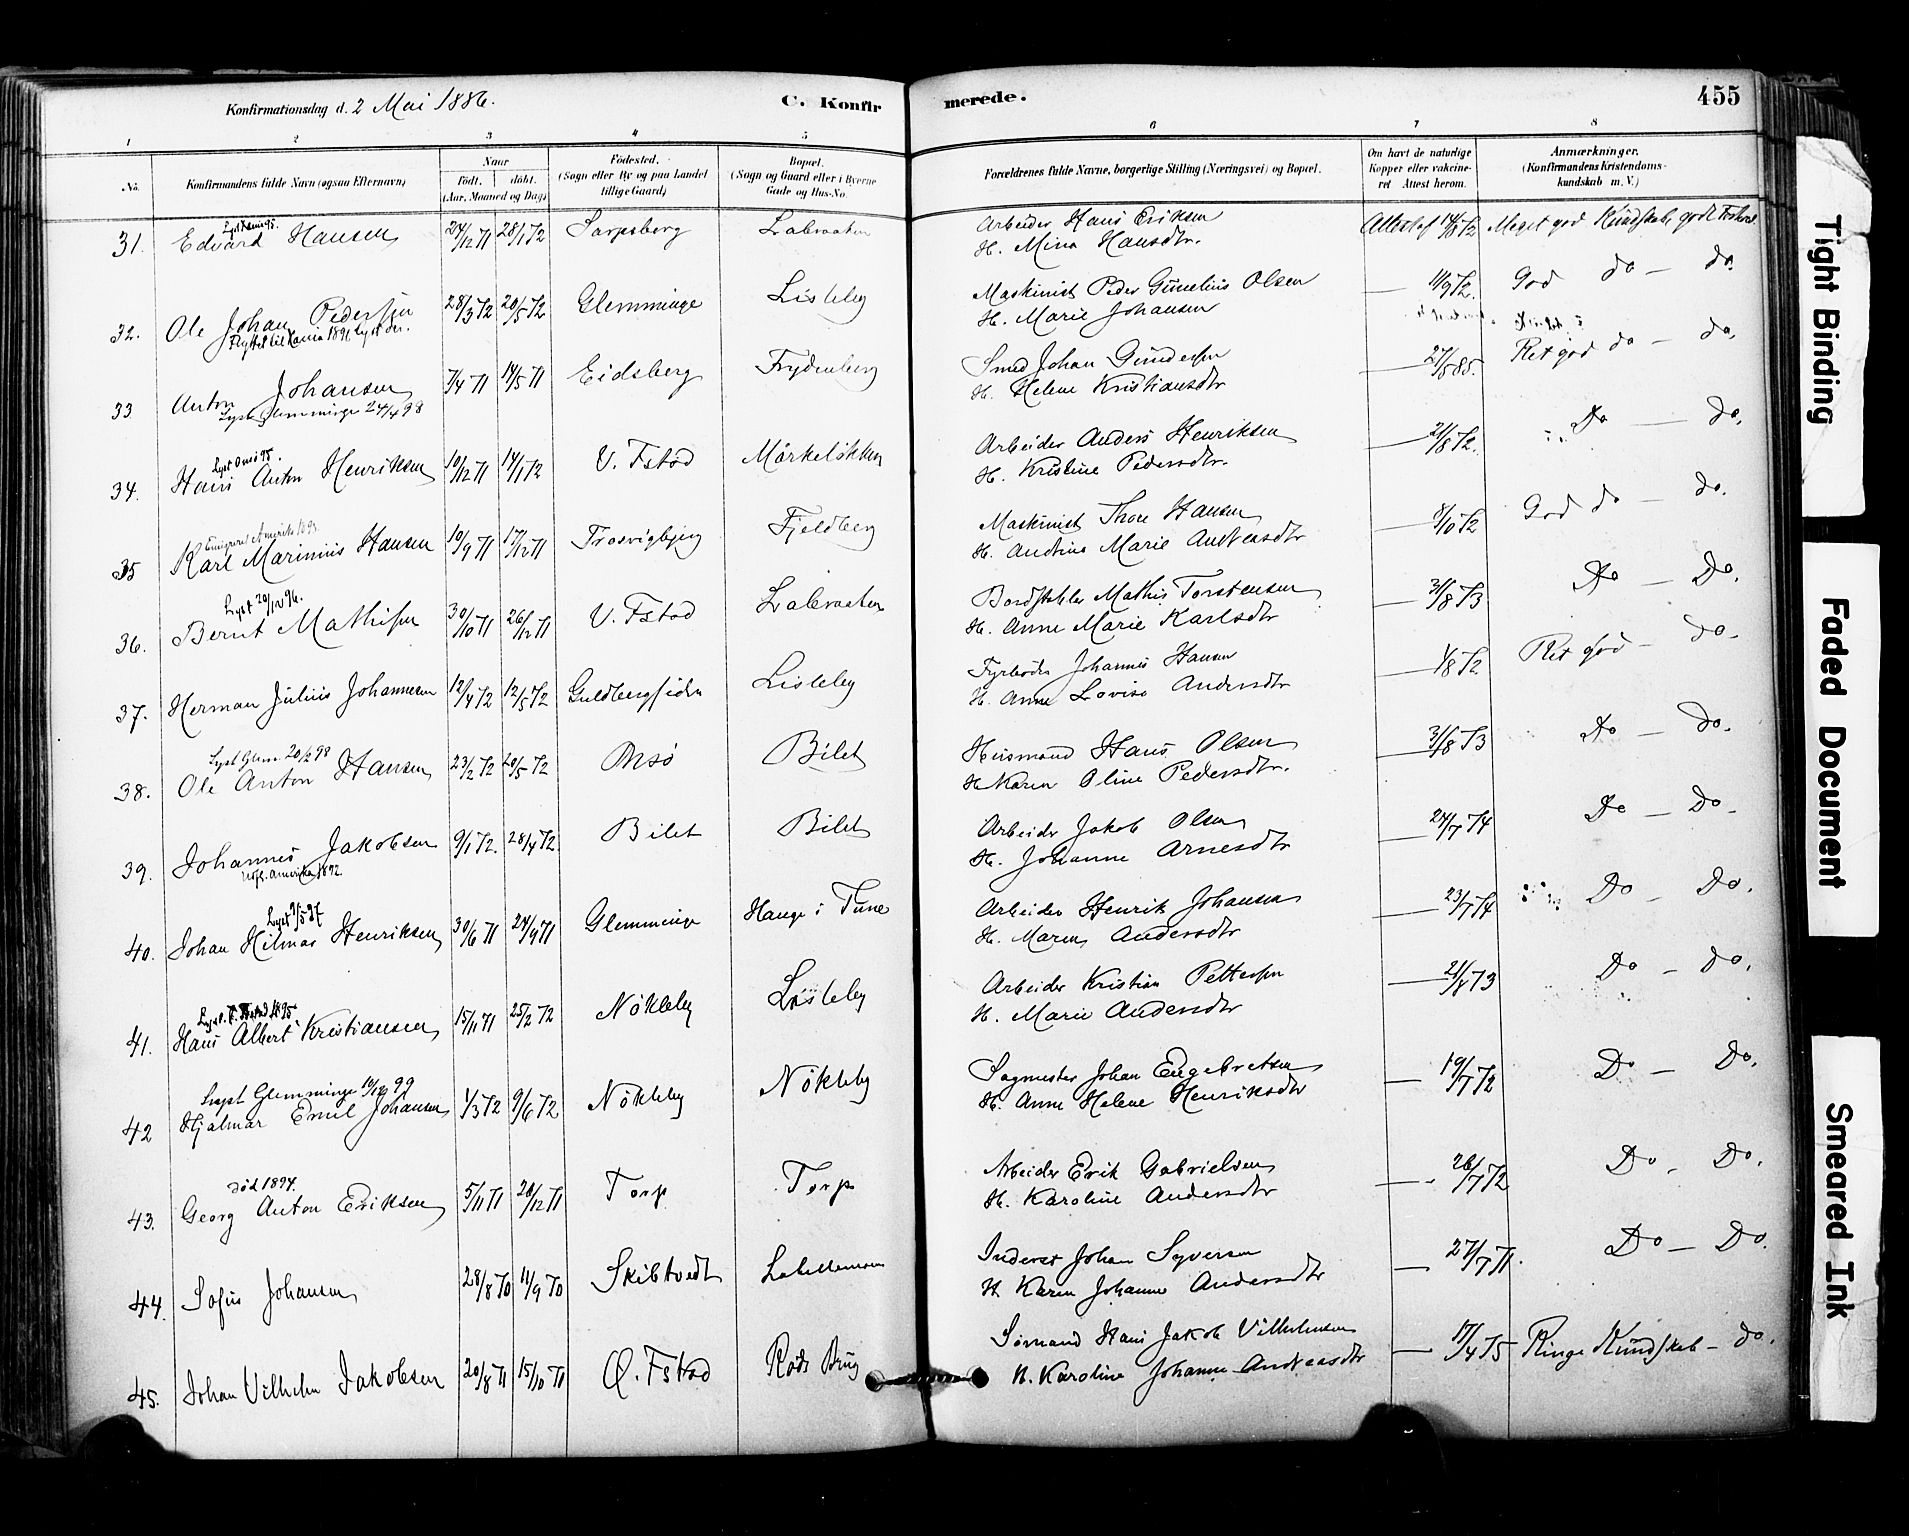 Konfirmationsdag d. 2 Mai 1886.
C. Konfirmerede.
455
1 2 3 4 5 6 7 8
No.
Konfirmandens fulde Navn (ogsaa Efternavn)
Naar
født. døbt.
(Aar, Maaned og Dag)
Fødested.
(Sogn eller By og paa Landet
tillige Gaard)
Bopæl.
(Sogn og Gaard eller i Byerne
Gade og Hus-No.
Forældrenes fulde Navne, borgerlige Stilling (Næringsvei) og Bopæl.
Om havt de naturlige
Kopper eller vakcine-
ret Attest herom.
Anmærkninger.
(Konfirmandens Kristendoms-
kundskab m. V.)
31. Edvard Hansen 24/12 71 28/1 72 Sarpsborg Labraaten Arbeider Hans Eriksen Attest af 14/8 72 Meget god Kundskab godt Forhold
H. Mina Hansdtr.
32. Ole Johan Pedersen 28/3 72 20/5 72 Glemminge Lisleby Maskinist Peder Gunelius Olsen — 11/9 72. God do — do.
Flyttet til Kania 1891 lyst der. H. Marie Johansen
33 Anton Johansen 7/4 71 14/5 71 Eidsberg Frydenberg Smed Johan Gundersen — 27/5 85. Ret god do — do.
Lyst Glemminge 24/4 98 H. Helene Kristiansdtr
34. Hans Anton Henriksen 10/12 71 14/1 72 V. Fstad Mørkeløkken Arbeider Anders Henriksen — 21/8 72. Do — do.
H. Kristine Pedersdtr.
Emigreret Amerika 189
35 Karl Marinius Hansen 10/9 71 17/12 71 Trosvigbjerg Fjeldberg Maskinist Thore Hansen — 8/10 72 God do — do.
H. Andrine Marie Andreasdtr
Lyst 20/12 96.
36. Bernt Mathisen 30/10 71 26/12 71 V. Fstad Labraaten Bordstabler Mathis Torstensen — 31/8 73 Do — Do.
H. Anne Marie Karlsdtr
37. Herman Julius Johannesen 12/4 72 12/5 72 Guldbergsiden Lisleby Fyrbøder Johannes Hansen — 1/8 72 Ret god — do.
H. Anne Lovise Andersdtr
Lyst Glem 20/2 98
38. Ole Anton Hansen 23/2 72 20/5 72 Onsø Bilet Husmand Hans Olsen — 31/8 73 Do — Do.
H. Karen Oline Pedersdtr.
39. Johannes Jakobsen 9/1 72. 28/4 72 Bilet Bilet Arbeider Jakob Olsen — 24/7 74 Do — Do.
Udfl. Amerika 1892 H. Johanne Arnesdtr
Lyst 9/5 97
40. Johan Hilmar Henriksen 30/6 71 24/9 71 Glemminge Hauge i Tune Arbeider Henrik Johansen — 23/7 74 Do — Do.
H. Maren Andersdtr
41. Hans Albert Kristiansen 15/11 71 25/2 72 Nøkleby Lisleby Arbeider Kristian Pettersen — 21/8 73 Do — Do.
H. Marie Andersdtr
Lyst Glemminge 10/12 99
42 Hjalmar Emil Johansen 1/3 72 9/6 72 Nøkleby Nøkleby Sagmester Johan Engebretsen — 19/7 72 Do — Do.
H. Anne Helene Henriksdtr
død 1894.
43. Georg Anton Eriksen 5/11 71 28/12 71 Torp Torp Arbeider Erik Gabrielsen — 26/7 72 Do — Do.
H. Karoline Andersdtr
44. Sofus Johansen 28/8 70 11/9 70 Skibtvedt Inderst Johan Syversen — 27/7 71. Do — Do.
H. Karen Johanne Andersdtr
45. Johan Vilhelm Jakobsen 20/8 71 15/10 71 Ø. Fstad Røds Brug Sømand Hans Jakob Vilhelmsen — 17/4 75 Ringe Kundskab — do.
H. Karoline Johanne Andreasdtr
Tight Binding
Faded Document
Smeared Ink